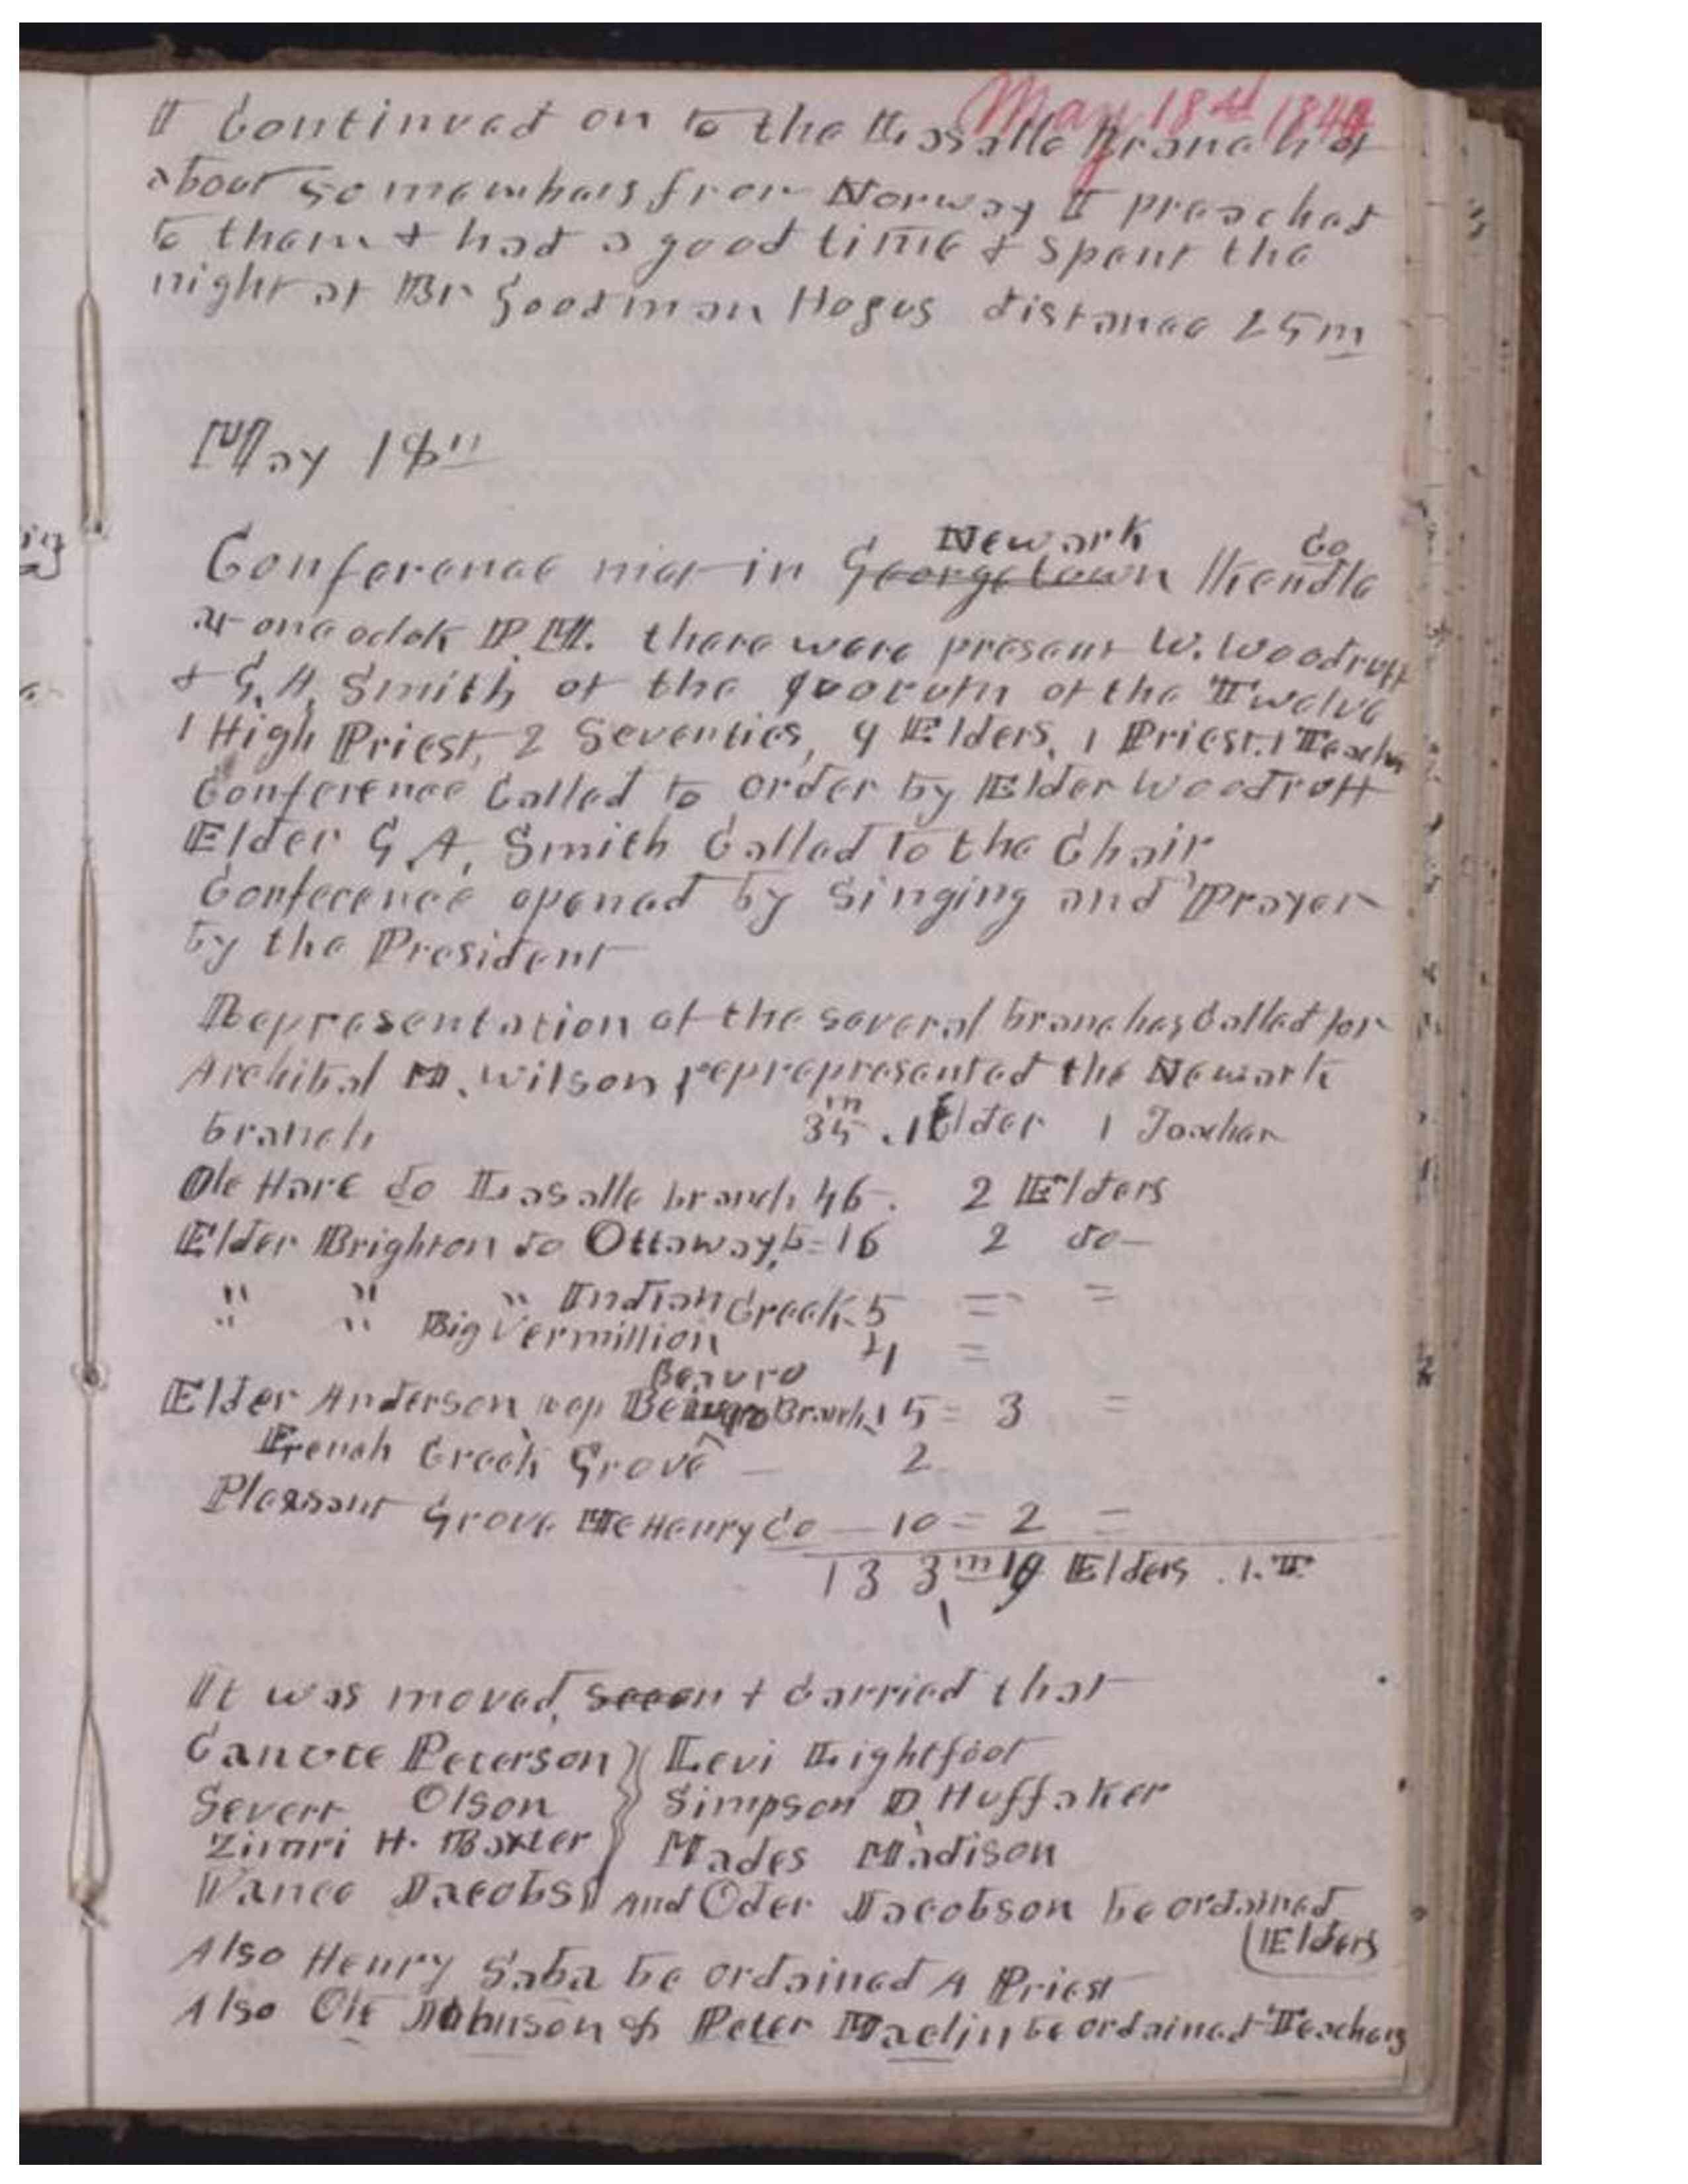 May 18th 1844
I Continued on to the Lasalle Branch of
about 50 members from Norway I preached
to them & had a good time & spent the
night at Br Goodman Hogus distance 25 m
May 18"
Conference met in Georgetown Newark Kendle Co
at one oclok P.M. there were present W. Woodruff
& G. A. Smith of the quorum of the Twelve
1 High Priest, 2 Seventies, 9 Elders, 1 Priest. 1 Teacher
Conference Called to order by Elder Woodruff
Elder G A. Smith Called to the Chair
Conference opened by Singing and Prayer
by the President
Representation of the several branches Called for
Archibal M. Wilson reprepresented the Newark
branch 35 m . 1 Elder 1 Teacher
Ole Hare do Lasalle branch 46 . 2 Elders
Elder Brighton do Ottaway, b = 16 2 do
" " " Indian Creek 5 = =
" " Big Vermillion 4 =
Beauro
Elder Anderson rep Branch 15 = 3 =
French Creek Grove 2
Pleasant Grove McHenry Co — 10 = 2 =
133 m 10 Elders . 1. T
It was moved, seeon & Carried that
Canute Peterson } Levi Lightfoot
Severt Olson } Simpson D Huffaker
Zimri H. Baxter } Mades Madison
Vance Jacobs } And Oder Jacobson be ordained
Elders
Also Henry Saba be ordained A Priest
Also Ole Johnson & Peter Maclin be ordained Teachers